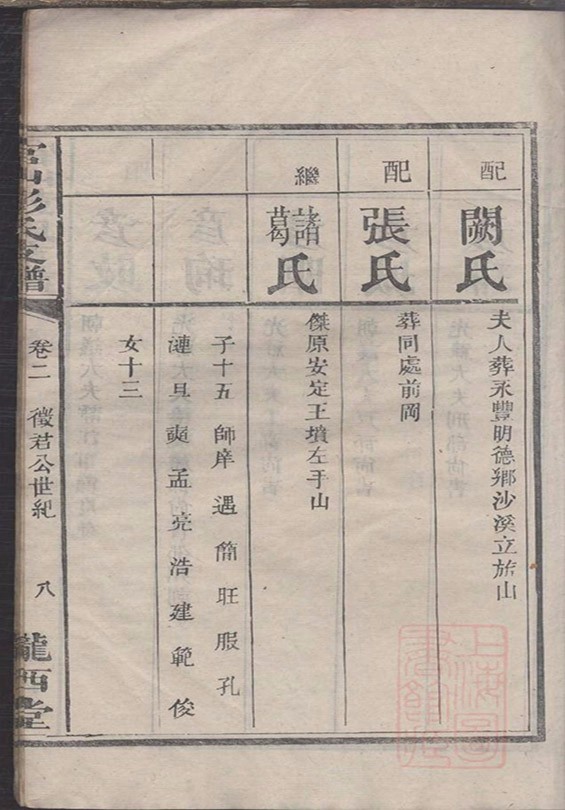 配
闕氏
夫人葬永豐明德鄉沙溪立旂山
配
張氏
葬同處前岡
繼
諸葛氏
傑原安定王墳左手山
子十五 師庠 遇 簡 旺 服 孔
漣 旦 奭 孟 亮 浩 建 範 俊
女十三
彭氏支譜
卷二 徵君公世紀 八
隴西堂